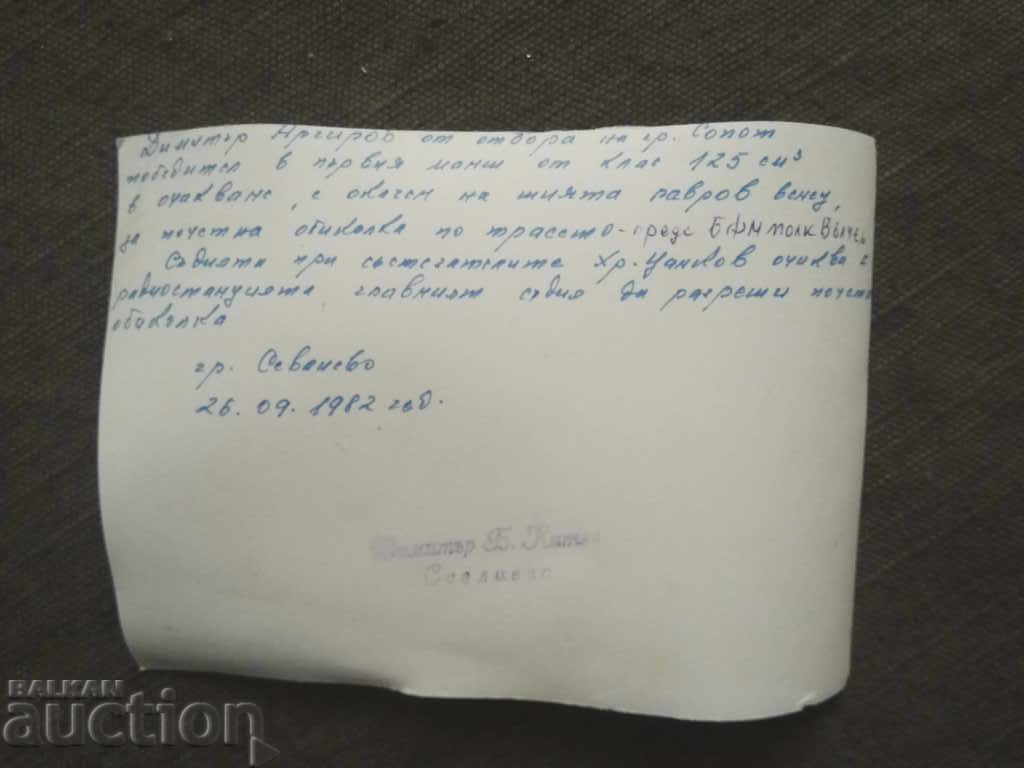 Димитър Аргиров от отбора на гр. Сопот
победител в първия манш от клас 125 см³
в очакване, с окачен на шията лавров венец,
за почетна обиколка по трасето - преде БФМ полк Вълчев
Съдията при състезателите Хр. Цанков очаква с
радиостанцията главният съдия да разреши почетна
обиколка
гр. Севлиево
26. 09. 1982 год.
Димитър Б.
Севлиево
BALKAN
auction